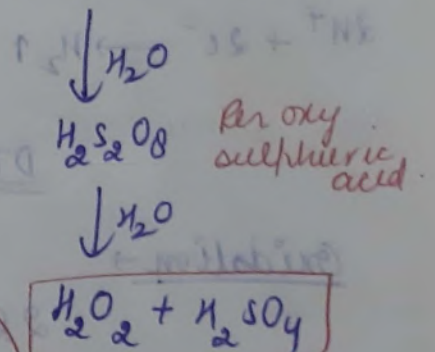 H₂O
H₂S₂O₈ Per oxy
sulphuric
acid.
H₂O
H₂O₂ + H₂SO₄